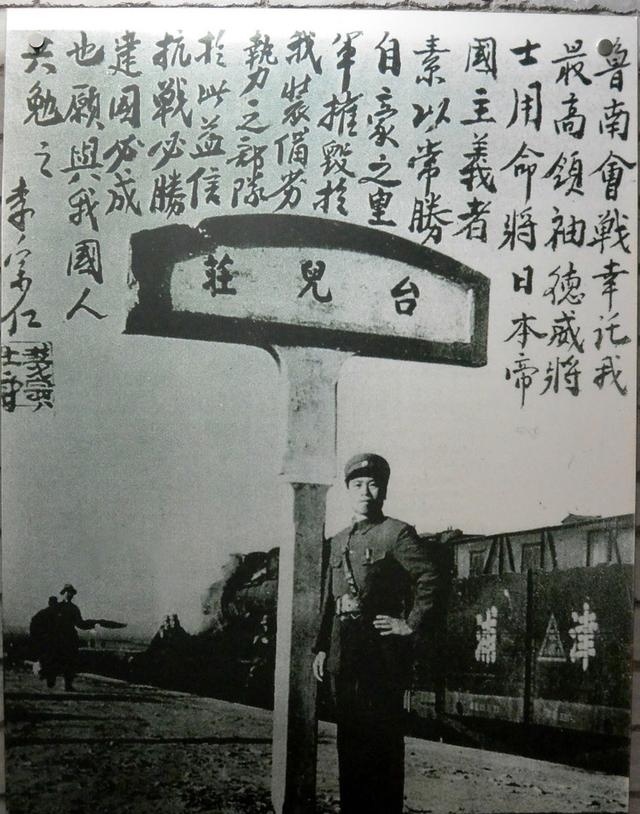 魯南會戰幸託我
最高領袖德威將
士用命將日本帝
國主義者
素以常勝
自豪之皇
軍摧毀於
我裝備劣
勢之部隊
於此益信
抗戰必勝
建國必成
也願與我國人
共勉之
李宗仁
台兒莊
津浦